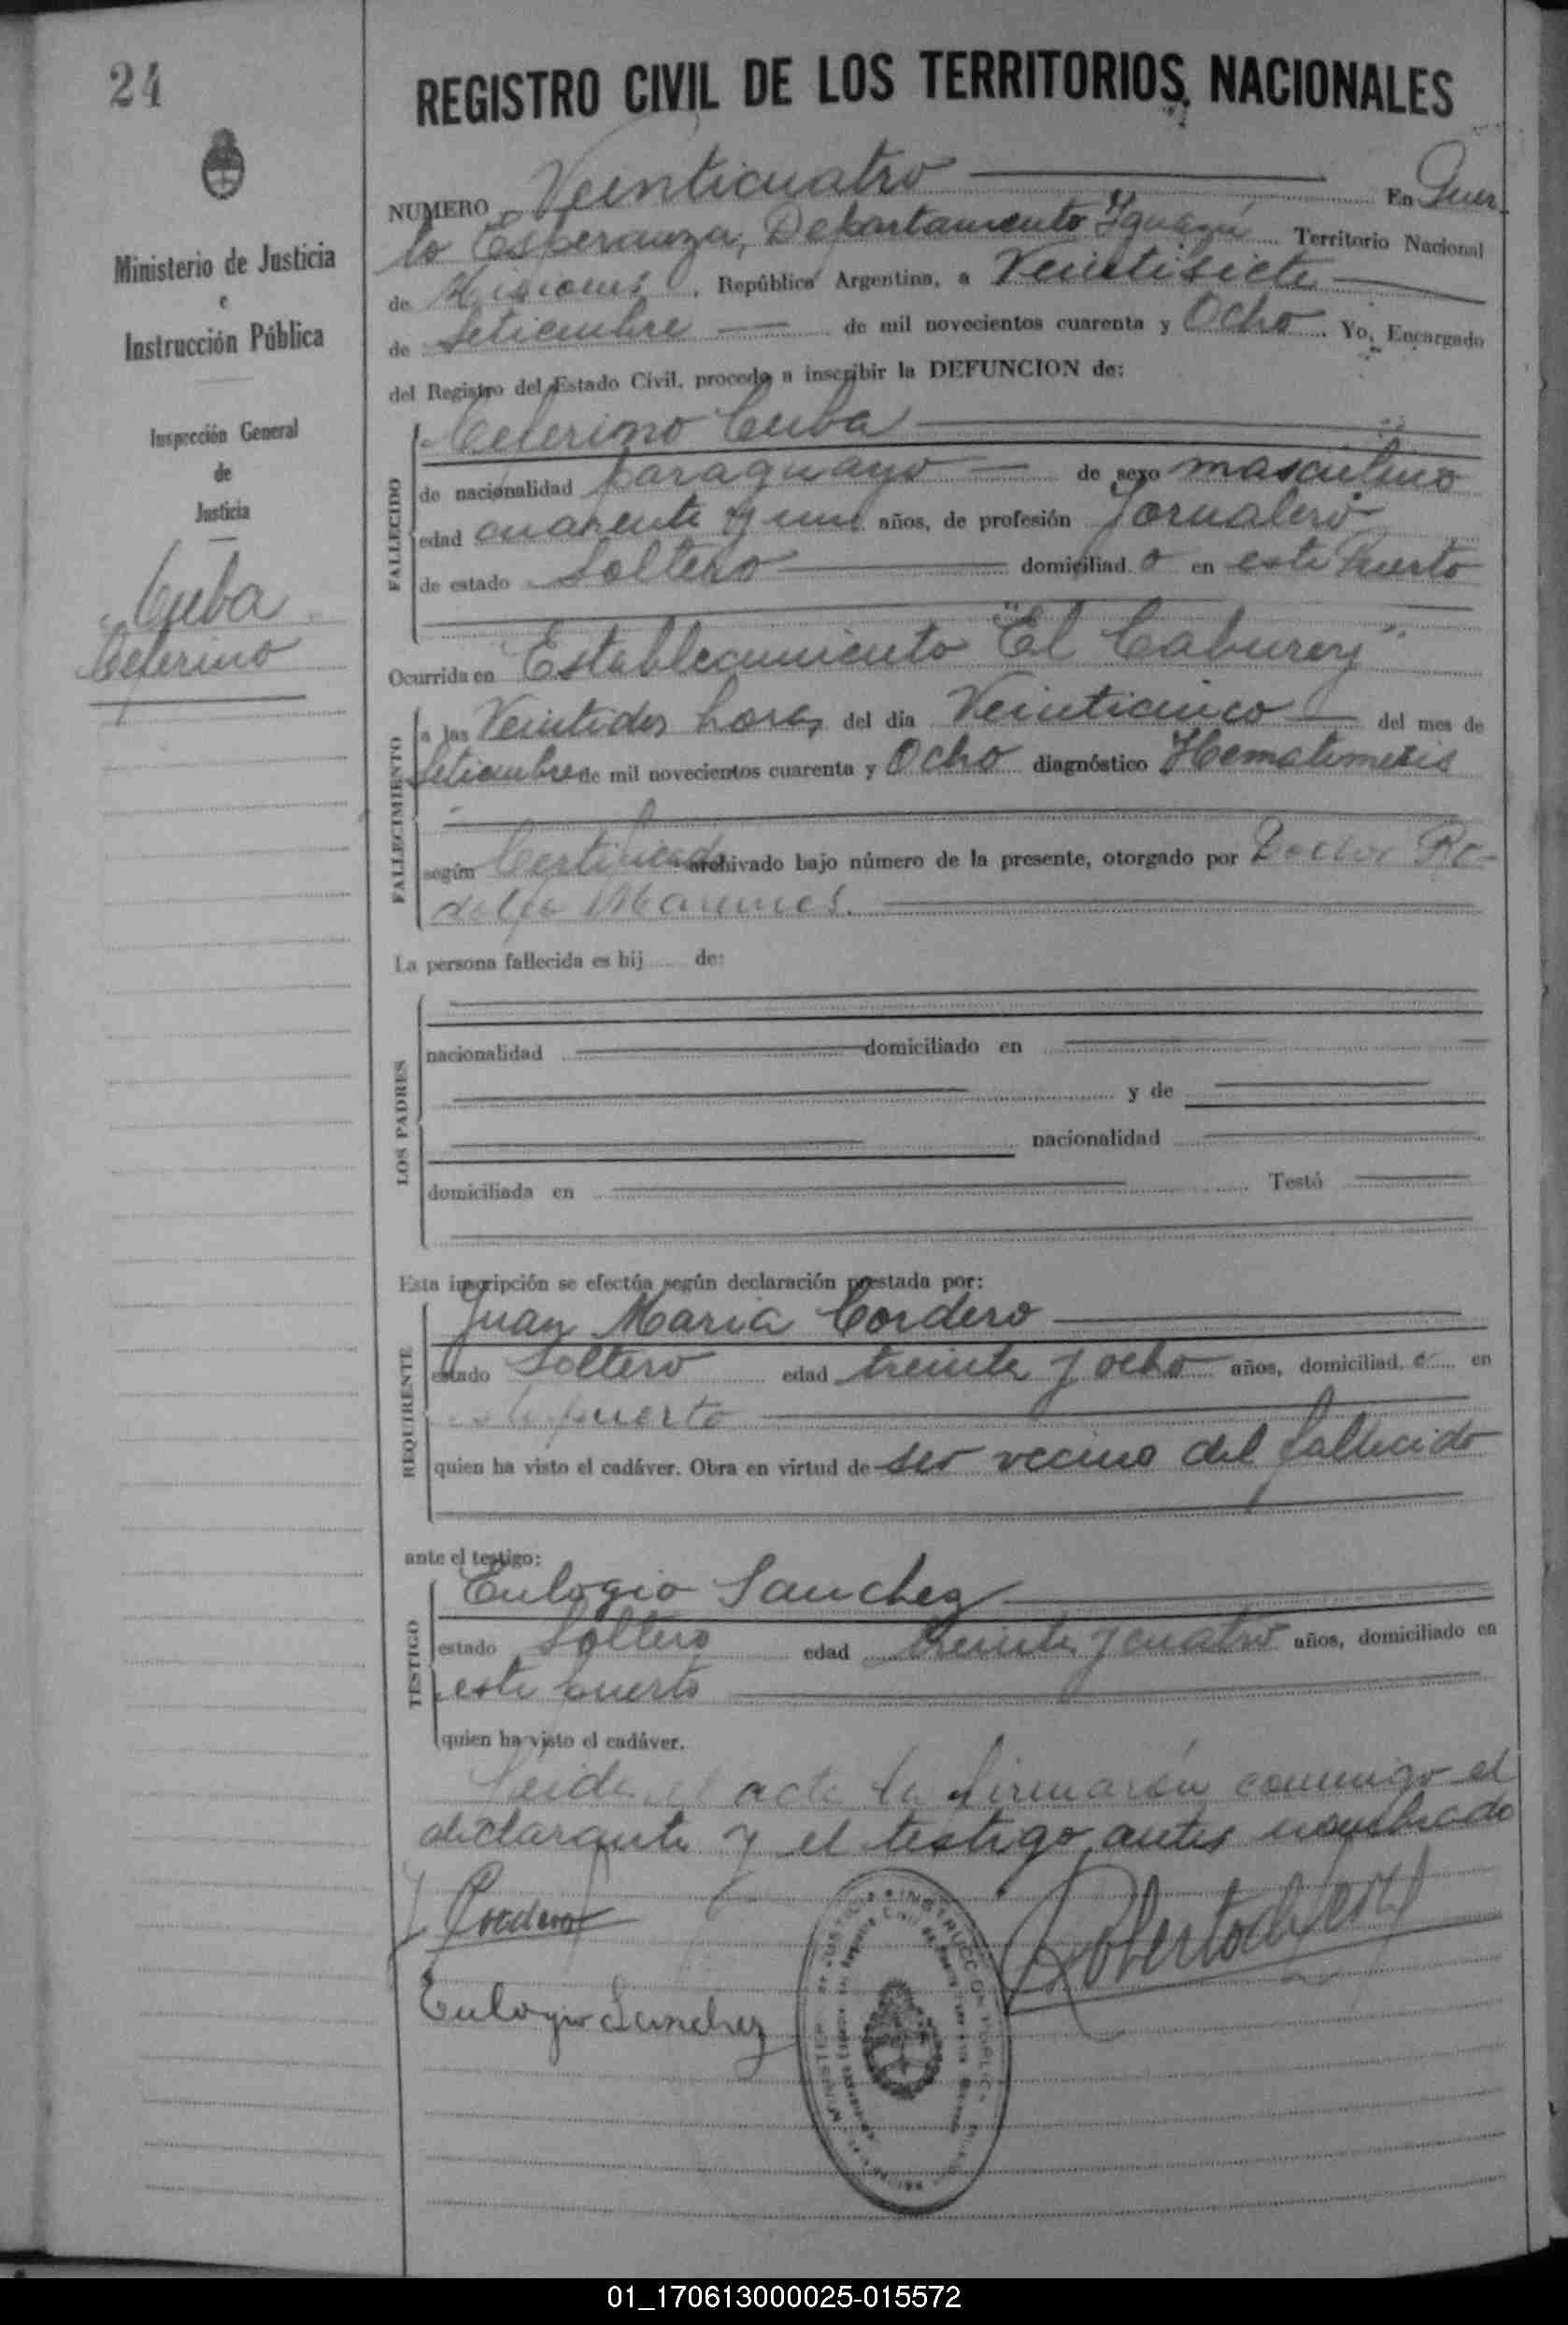 24
REGISTRO CIVIL DE LOS TERRITORIOS NACIONALES
Ministerio de Justicia
e
Instrucción Pública
Inspección General
de
Justicia
Cuba
Ceferino
NUMERO Veinticuatro En Puer
to Esperanza, Departamento Iguazú Territorio Nacional
de Misiones, República Argentina, a Veintisiete
de Setiembre de mil novecientos cuarenta y Ocho. Yo, Encargado
del Registro del Estado Civil, procedo a inscribir la DEFUNCION de:
Ceferino Cuba
FALLECIDO
de nacionalidad paraguayo de sexo masculino
edad cuarenta y un años, de profesión Jornalero
de estado Soltero domiciliad o en este Puerto
Ocurrida en Establecimiento "El Caburey"
FALLECIMIENTO
a las Veintidos horas del día Veinticinco del mes de
Setiembre de mil novecientos cuarenta y Ocho diagnóstico Hematemesis
según Certificado archivado bajo número de la presente, otorgado por Doctor Ro-
dolfo
La persona fallecida es hij de:
LOS PADRES
nacionalidad domiciliado en
y de
nacionalidad
domiciliada en Testó
Esta inscripción se efectúa según declaración prestada por:
Juan Maria Cordero
REQUIRENTE
estado Soltero edad treinta y ocho años, domiciliad o en
este puerto
quien ha visto el cadáver. Obra en virtud de ser vecino del fallecido
ante el testigo:
Eulogio Sanchez
TESTIGO
estado Soltero edad treinta y cuatro años, domiciliado en
este puerto
quien ha visto el cadáver.
Leida el acta la firmarón conmigo el
declarante y el testigo antes nombrado
Cordero
Eulogio Sanchez
01_170613000025-015572